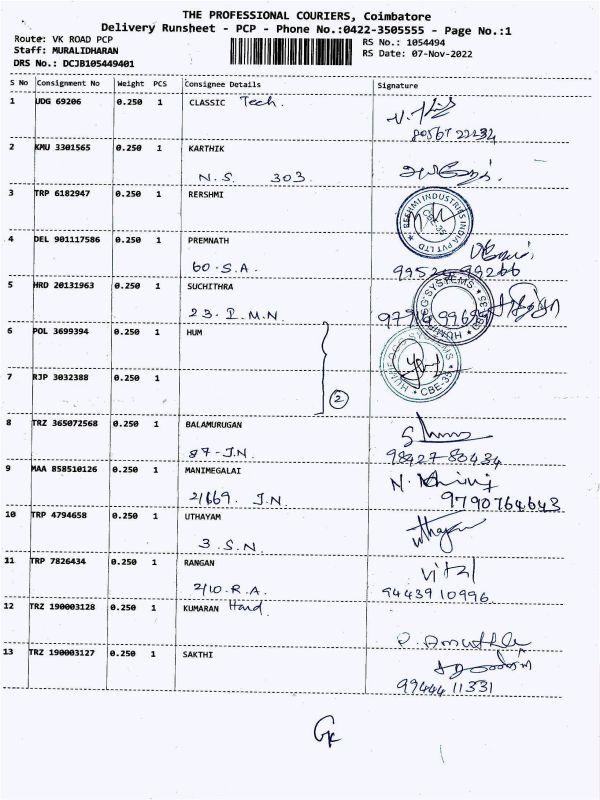 THE PROFESSIONAL COURIERS, Coimbatore
Delivery Runsheet - PCP - Phone No.:0422-3505555 - Page No.:1
Route: VK ROAD PCP
RS No.: 1054494
Staff: MURALIDHARAN
RS Date: 07-Nov-2022
DRS No.: DCJB105449401
S No Consignment No Weight PCS Consignee Details Signature
1 UDG 69206 0.250 1 CLASSIC Tech.
80567 22434
2 KMU 3301565 0.250 1 KARTHIK
N.S. 303.
3 TRP 6182947 0.250 1 RERSHMI
RESHMI INDUSTRIES INDIA PVT LTD CBE-35
4 DEL 901117586 0.250 1 PREMNATH
60.S.A.
5 HRD 20131963 0.250 1 SUCHITHRA
23.I.M.N.
SYSTEMS
6 POL 3699394 0.250 1 HUM
SYSTEMS CBE-35
7 RJP 3032388 0.250 1
2
8 TRZ 365072568 0.250 1 BALAMURUGAN
87-J.N. 98427-80434
9 MAA 858510126 0.250 1 MANIMEGALAI
2/669. J.N 9790764643
10 TRP 4794658 0.250 1 UTHAYAM
3.S.N uthayam
11 TRP 7826434 0.250 1 RANGAN
2/10.R.A. 9443910996
12 TRZ 190003128 0.250 1 KUMARAN Hard
13 TRZ 190003127 0.250 1 SAKTHI
99444 11331